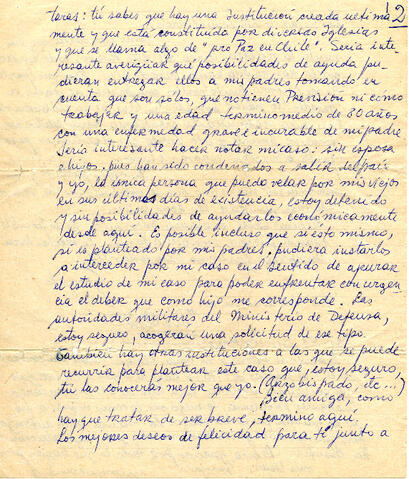 2
teras: tú sabes que hay una Institución creada ultima
mente y que está constituida por diversas Iglesias
y que se llama algo de "pro Paz en Chile". Sería inte-
resante averiguar que posibilidades de ayuda pu-
dieran entregar ellos a mis padres tomando en
cuenta que son sólos, que no tienen Pensión ni cómo
trabajar y una edad término medio de 80 años
con una enfermedad grave e incurable de mi padre
Sería interesante hacer notar mi caso: sin esposa
e hijos, pues han sido condenados a salir del país
y yo, la única persona que puede velar por mis viejos
en sus últimos días de existencia, estoy detenido
y sin posibilidades de ayudarlos económicamente
desde aquí. Es posible incluso que si ésto mismo,
si es planteado por mis padres, pudiera instarlos
a interceder por mi caso en el sentido de apurar
el estudio de mi caso para poder enfrentar con urgen
cia el deber que como hijo me corresponde. Las
autoridades militares del Ministerio de Defensa,
estoy seguro, acogerán una solicitud de ese tipo.
También hay otras instituciones a las que se puede
recurrir para plantear este caso que, estoy seguro,
tú las conocerás mejor que yo. (Arzobispado, etc...)
Bien amiga, como
hay que tratar de ser breve, termino aquí.
Los mejores deseos de felicidad para ti junto a